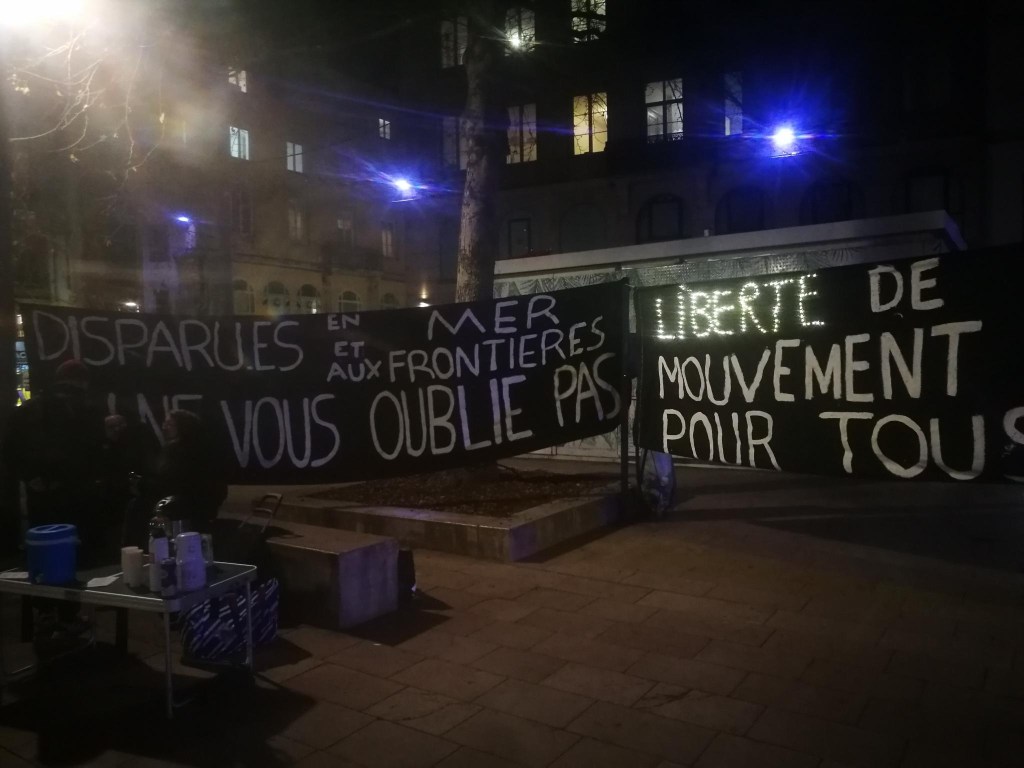 DISPARU.ES EN MER
ET AUX FRONTIERES
NE VOUS OUBLIE PAS
LIBERTE DE
MOUVEMENT
POUR TOUS